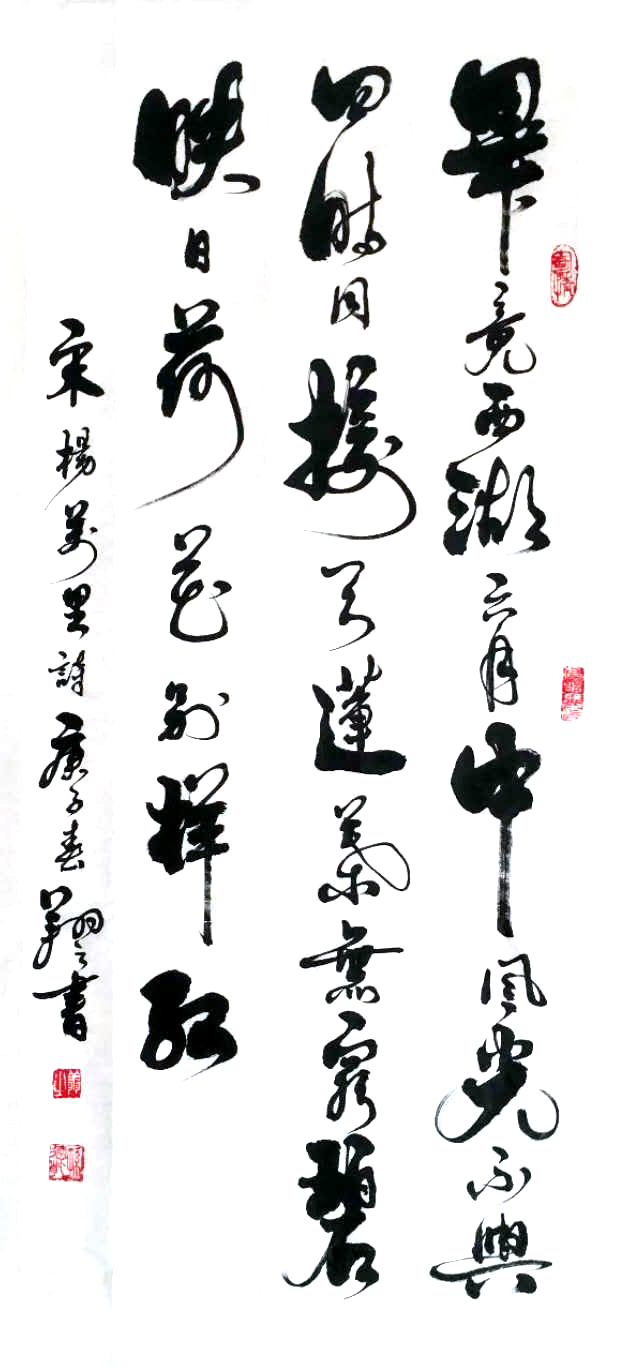 畢竟西湖六月中風光不與
四時同接天蓮葉無窮碧
映日荷花别樣紅
宋楊萬里詩庚子春翔之書